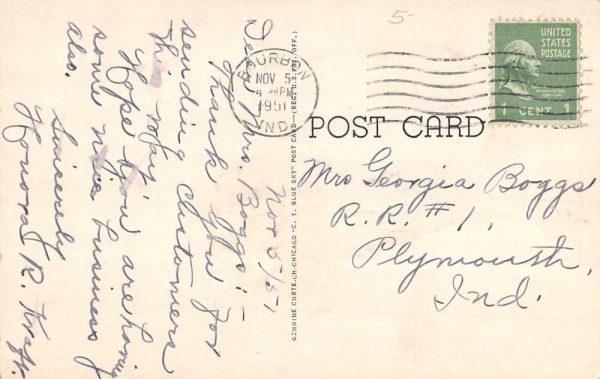 5-
BOURBON
NOV 5
4 PM
1951
IND.
UNITED
STATES
POSTAGE
1 CENT 1
POST CARD
Mrs Georgia Boggs
R.R. #1,
Plymouth,
Ind.
GENUINE CURTEICH-CHICAGO "C. T. BLUE SKY" POST CARD—(REG. U.S. PAT. OFF.)
Nov 5/51
Dear Mrs. Boggs:-
Thank you for
sending customers
this way
Hope you are having
some nice business
also.
Sincerely
Honora R.